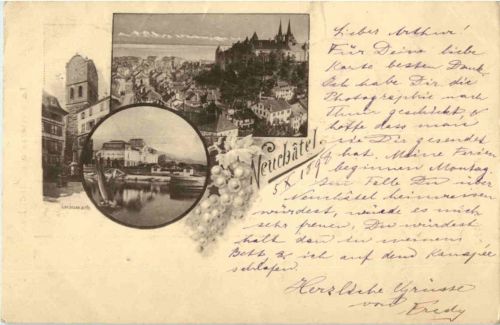 Neuchâtel.
5 X 1897
Lieber Arthur!
Für Deine liebe
Karte besten Dank.
Ich habe Dir die
Photographie nach
Thun geschickt, &
hoffe dass man
sie Dir gesendet
hat. Meine Ferien
beginnen Montag.
Im Falle Du über
Neuchâtel heimreisen
würdest, würde es mich
sehr freuen, Du würdest
halt dan in meinem
Bett & ich auf dem Kanapée
schlafen.
Herzliche Grüsse
von Fredy